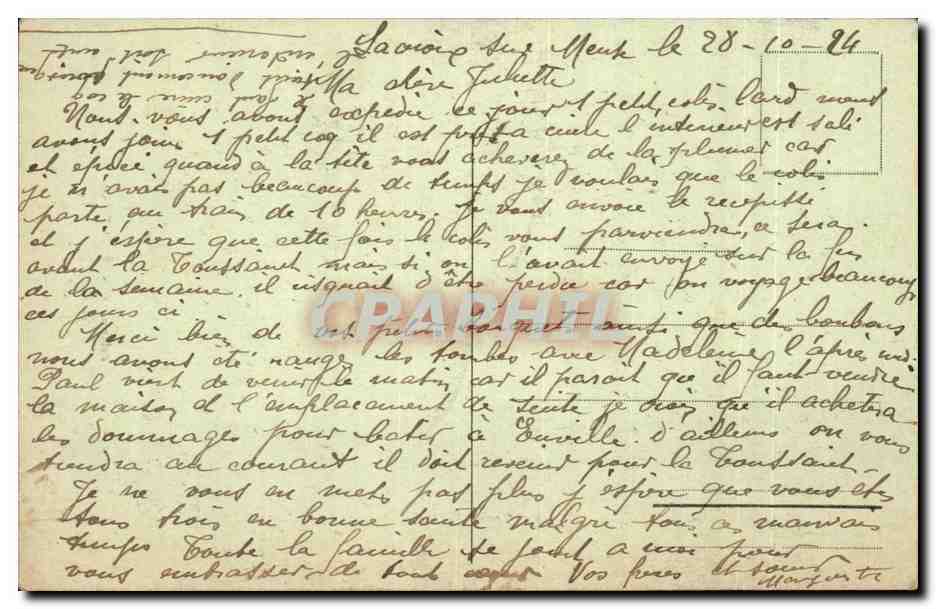 Lacroix sur Meuse le 28-10-24
Ma chère Juliette
Nous vous avons expédié ce jour 1 petit colis. Lard nous
avons joint 1 petit coq il est prêt a cuire l'intérieur est salé
et épicé quand à la tête vous acheverez de la plumer car
je n'avais pas beaucoup de temps je voulais que le colis
parte au train de 10 heures. Je vous envoie le recepissé
et j'espère que cette fois le colis vous parviendra, ce sera
avant la Toussaint mais si on l'avait envoyé sur la fin
de la semaine il risquait d'être perdu car on voyage beaucoup
ces jours ci
Merci bien de vos petits bouquets ainsi que des bonbons
nous avons été range les tombes avec Madeleine l'après midi
Paul vient de venir le matin car il parait que il faut vendre
la maison et l'emplacement de suite je crois qu'il achetera
les dommages pour batir à Euville d'ailleurs on vous
tiendra au courant il doit revenir pour la Toussaint
Je ne vous en mets pas plus j'espère que vous etes
tous trois en bonne santé malgré tous ces mauvais
temps Toute la famille se joint a moi pour
vous embrasser de tout coeur Vos freres et soeur
Marguerite
CPAPHIL